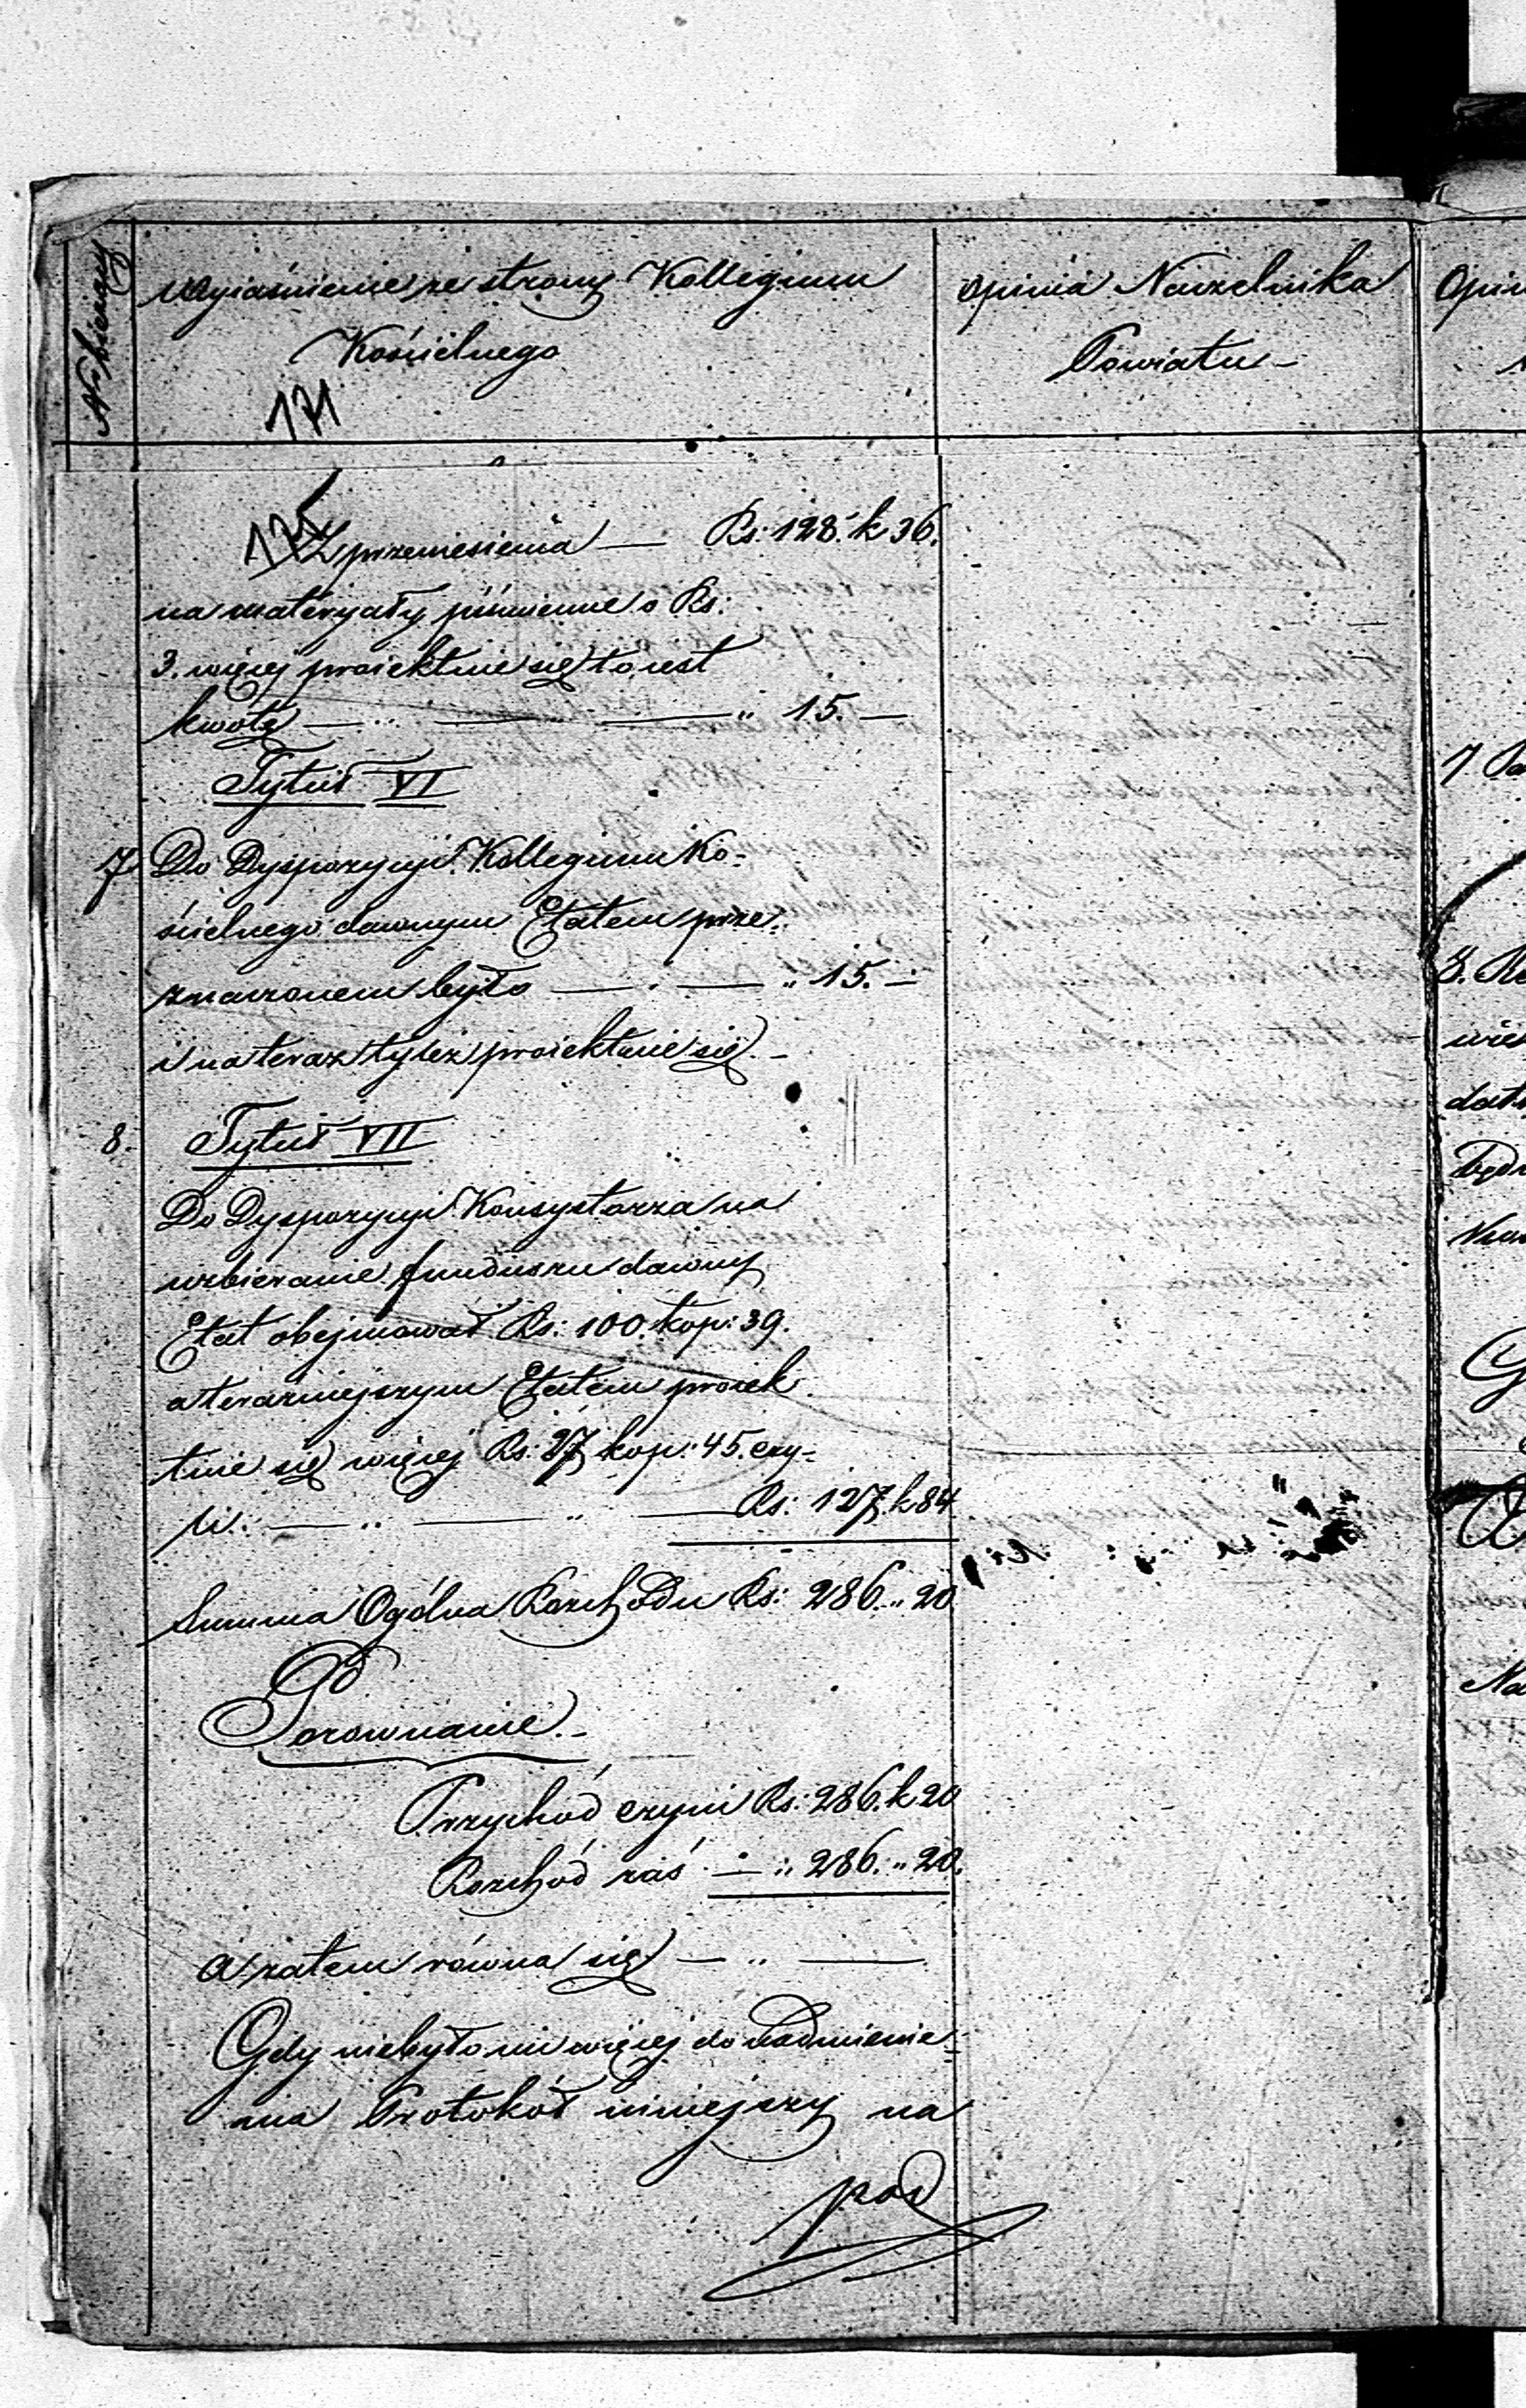 No bieżący
Wyiaśnienie ze strony Kollegium
Kościelnego
Opinia Naczelnika
Powiatu
Opin
171
Z przeniesienia — Rs: 128. k 36.
na materyały piśmienne o Rs:
3. więcej proiektuie się to iest
kwotę — „ — — „ 15. —
Tytuł VI
7 Do Dyspozycyi Kollegium Ko-
ścielnego dawnym Etatem prze-
znaczonem było — . — „ 15. —
i na teraz tyleż proiektuie się. —
8. Tytuł VII
Do Dyspozycyi Konsystorza na
uzbieranie funduszu dawny
Etat obejmował Rs: 100. kop: 39.
a teraźniejszym Etatem proiek
tuie się więcej Rs: 27 kop: 45. czy-
li: — „ — „ — Rs: 127. k 84
Summa Ogólna Rozchodu Rs: 286. „ 20
Porownanie. —
Przychód czyni Rs: 286. k 20
Rozchód zaś — „ 286. „ 20.
a zatem równa się — „ —
Gdy niebyło nic więcej do nadmienie-
nia Protokół niniejszy na
pod
7 Po
8. Re
wie
dat
będ
G
Na